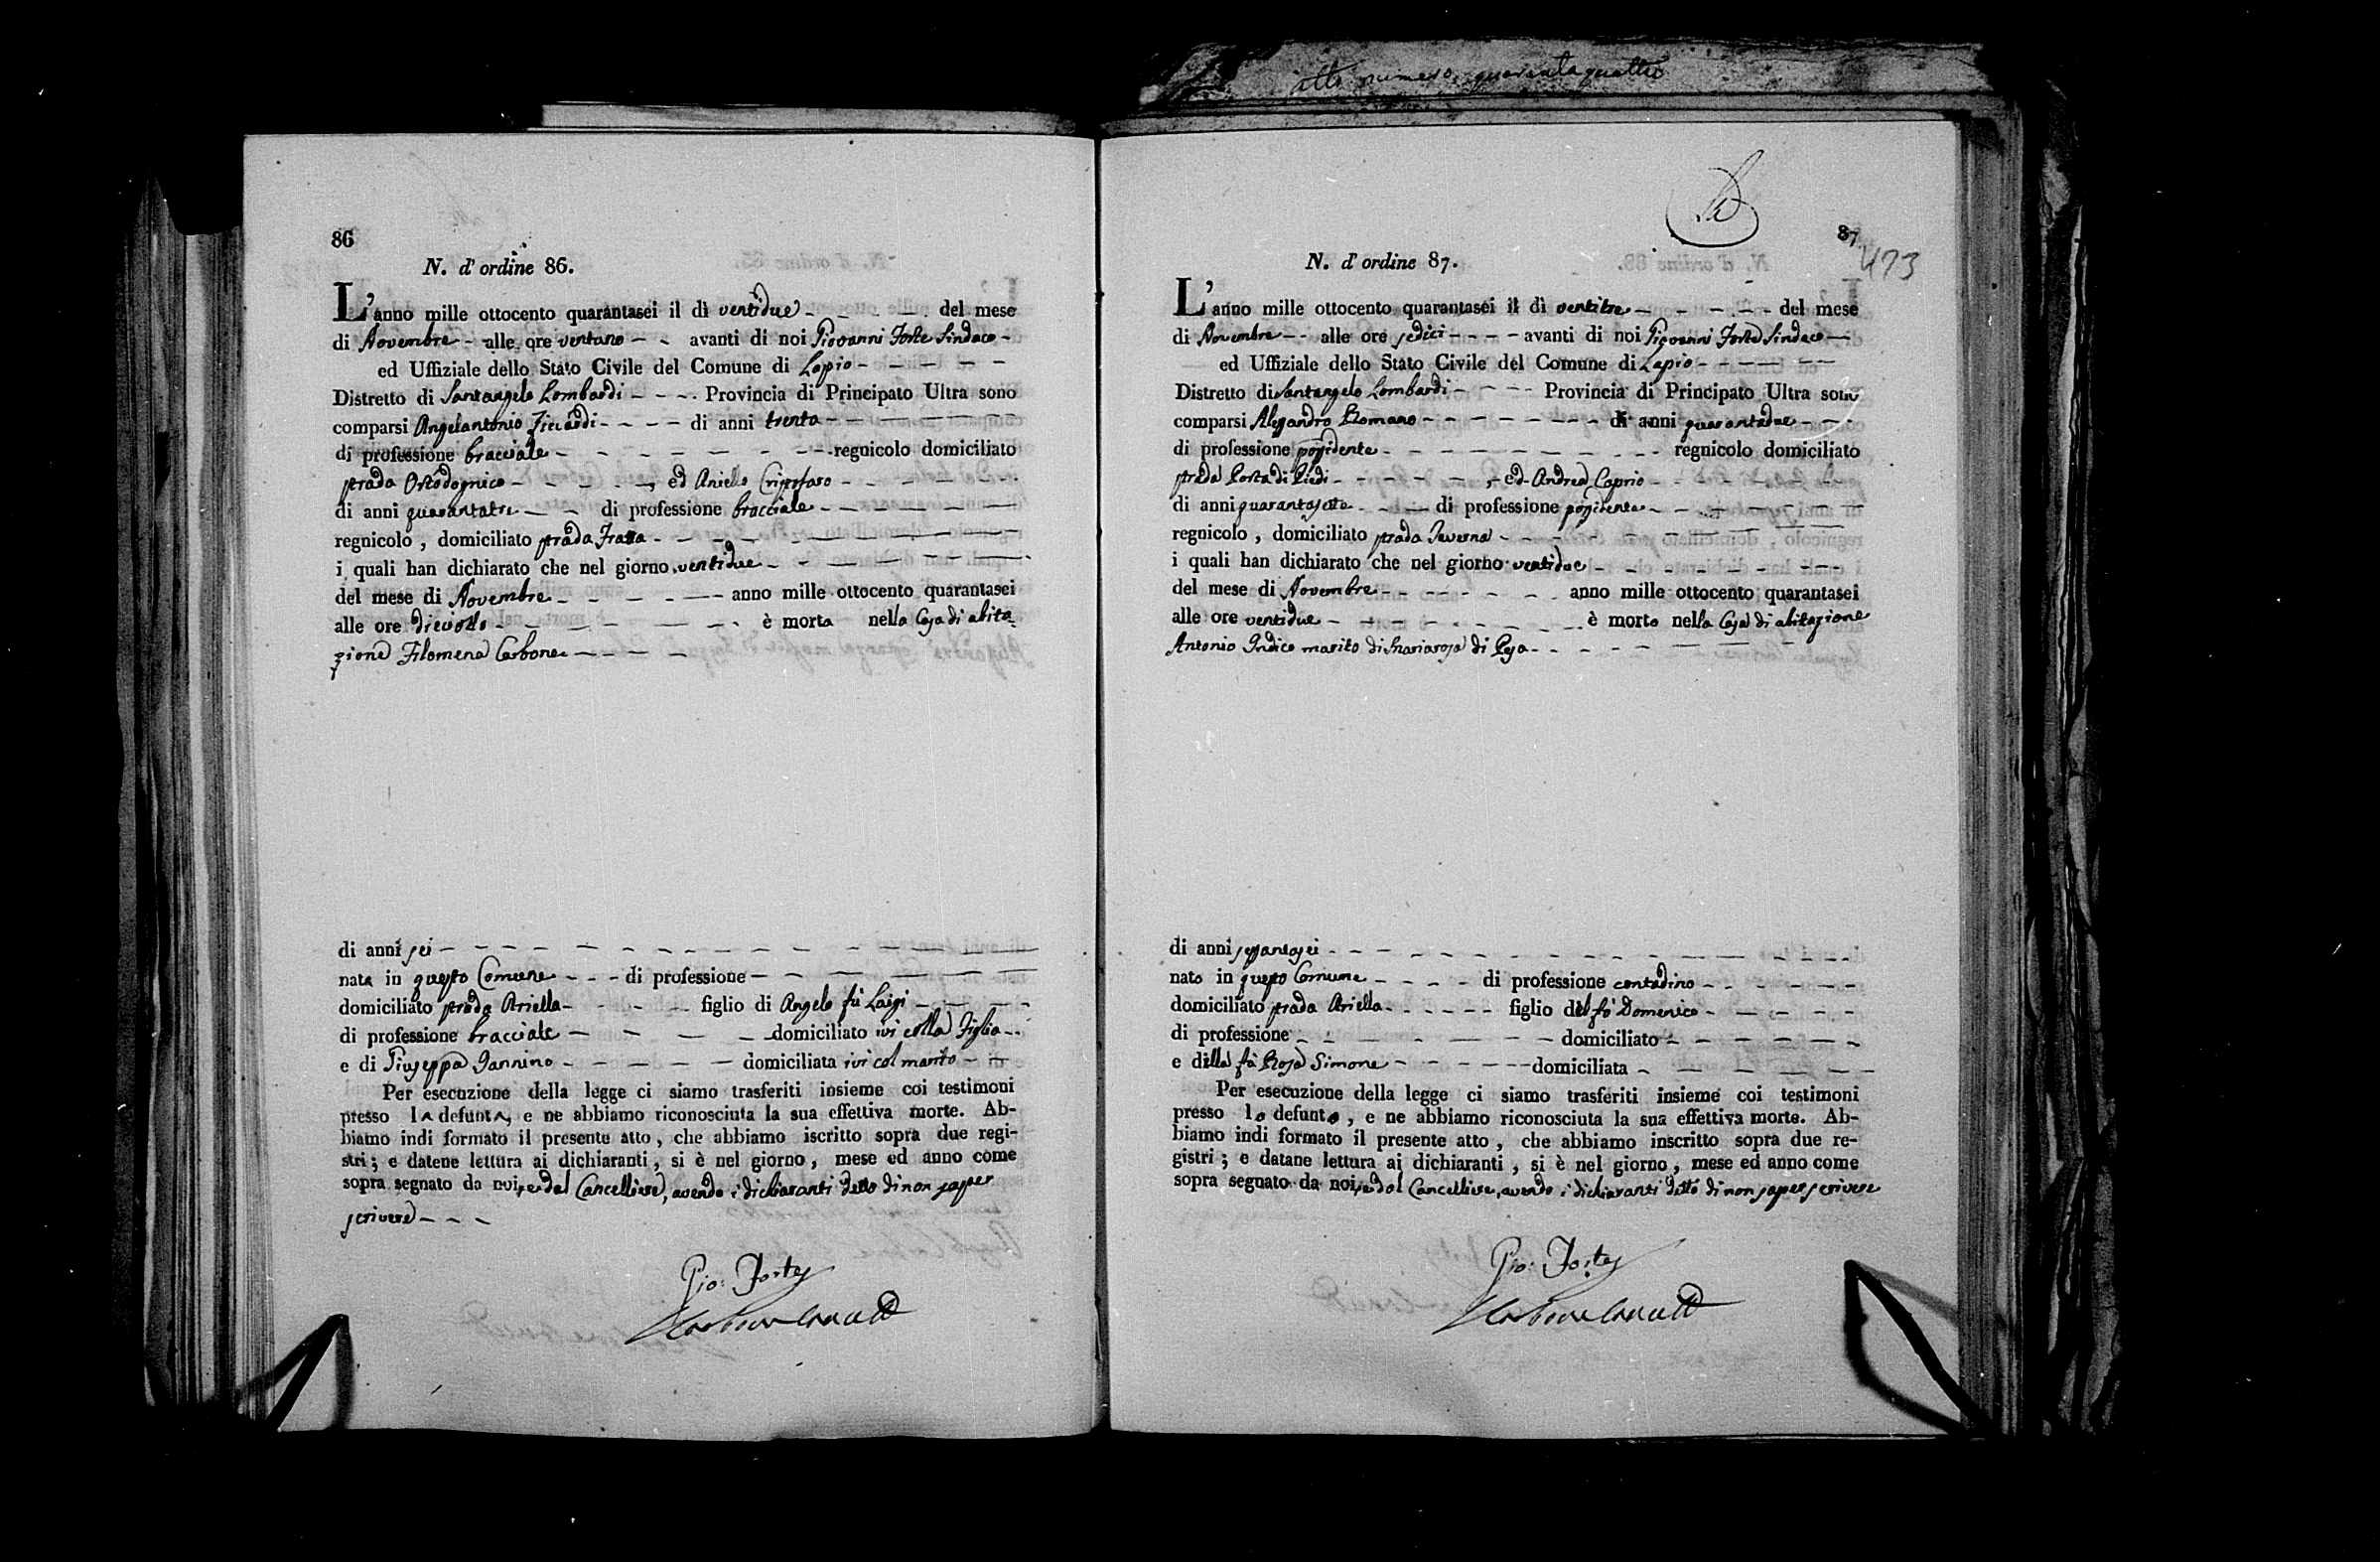 atto numero quarantaquattro
86
N. d'ordine 86.
L'anno mille ottocento quarantasei il dì ventidue del mese
di Novembre alle ore ventuno avanti di noi Giovanni Forte Sindaco
ed Uffiziale dello Stato Civile del Comune di Lapio
Distretto di Santangelo Lombardi Provincia di Principato Ultra sono
comparsi Angelantonio Ficcardi di anni trenta
di professione bracciale regnicolo domiciliato
strada Ostodognico, ed Aniello Cristofaro
di anni quarantatre di professione bracciale
regnicolo, domiciliato strada
i quali han dichiarato che nel giorno ventidue
del mese di Novembre anno mille ottocento quarantasei
alle ore dieciotto è morta nella Casa di abita-
zione Filomena Carbone
di anni sei
nata in questo Comune di professione
domiciliato strada Ariella figlio di Angelo fù Luigi
di professione bracciale domiciliato ivi colla figlia
e di Giuseppa Iannino domiciliata ivi col marito
Per esecuzione della legge ci siamo trasferiti insieme coi testimoni
presso la defunta, e ne abbiamo riconosciuta la sua effettiva morte. Ab-
biamo indi formato il presente atto, che abbiamo iscritto sopra due regi-
stri; e datene lettura ai dichiaranti, si è nel giorno, mese ed anno come
sopra segnato da noi, e dal Cancelliere, avendo i dichiaranti detto di non saper
scrivere
Gio: Forte
87
473
N. d'ordine 87.
L'anno mille ottocento quarantasei il dì ventitre del mese
di Novembre alle ore sedici avanti di noi Giovanni Forte Sindaco
ed Uffiziale dello Stato Civile del Comune di Lapio
Distretto di Santangelo Lombardi Provincia di Principato Ultra sono
comparsi Alessandro Romano di anni quarantadue
di professione possidente regnicolo domiciliato
strada Porta di Piedi, ed Andrea Caprio
di anni quarantasette di professione possidente
regnicolo, domiciliato strada Taverna
i quali han dichiarato che nel giorno ventidue
del mese di Novembre anno mille ottocento quarantasei
alle ore ventidue è morto nella Casa di abitazione
Antonio Indico marito di Mariarosa di Pesa
di anni sessantasei
nato in questo Comune di professione contadino
domiciliato strada Ariella figlio del fù Domenico
di professione domiciliato
e della fù Rosa Simone domiciliata
Per esecuzione della legge ci siamo trasferiti insieme coi testimoni
presso lo defunto, e ne abbiamo riconosciuta la sua effettiva morte. Ab-
biamo indi formato il presente atto, che abbiamo inscritto sopra due re-
gistri; e datane lettura ai dichiaranti, si è nel giorno, mese ed anno come
sopra segnato da noi, e dal Cancelliere, avendo i dichiaranti detto di non saper scrivere
Gio: Forte